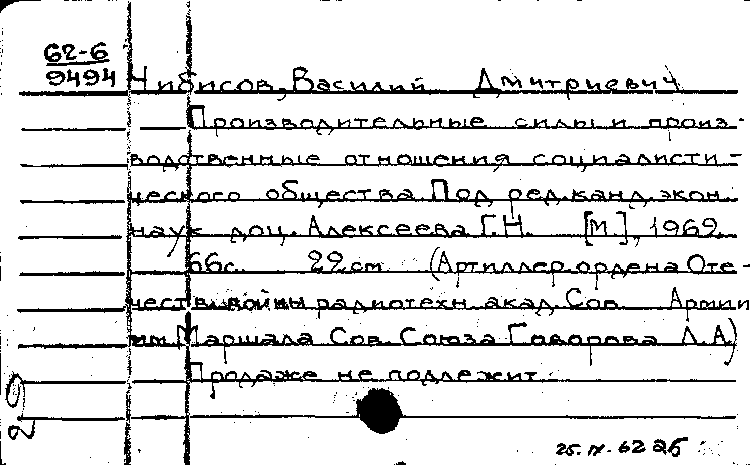 62-6
9494
Чибисов, Василий Дмитриевич
Производительные силы и произ-
водственные отношения социалисти-
ческого общества. Под ред. канд. экон.
наук доц. Алексеева Г.Н. [М.], 1962.
66с. 22 cm (Артиллер. ордена Оте-
честв. войны радиотехн. акад. Сов. Армии
им. Маршала Сов. Союза Говорова Л.А.)
Продаже не подлежит.